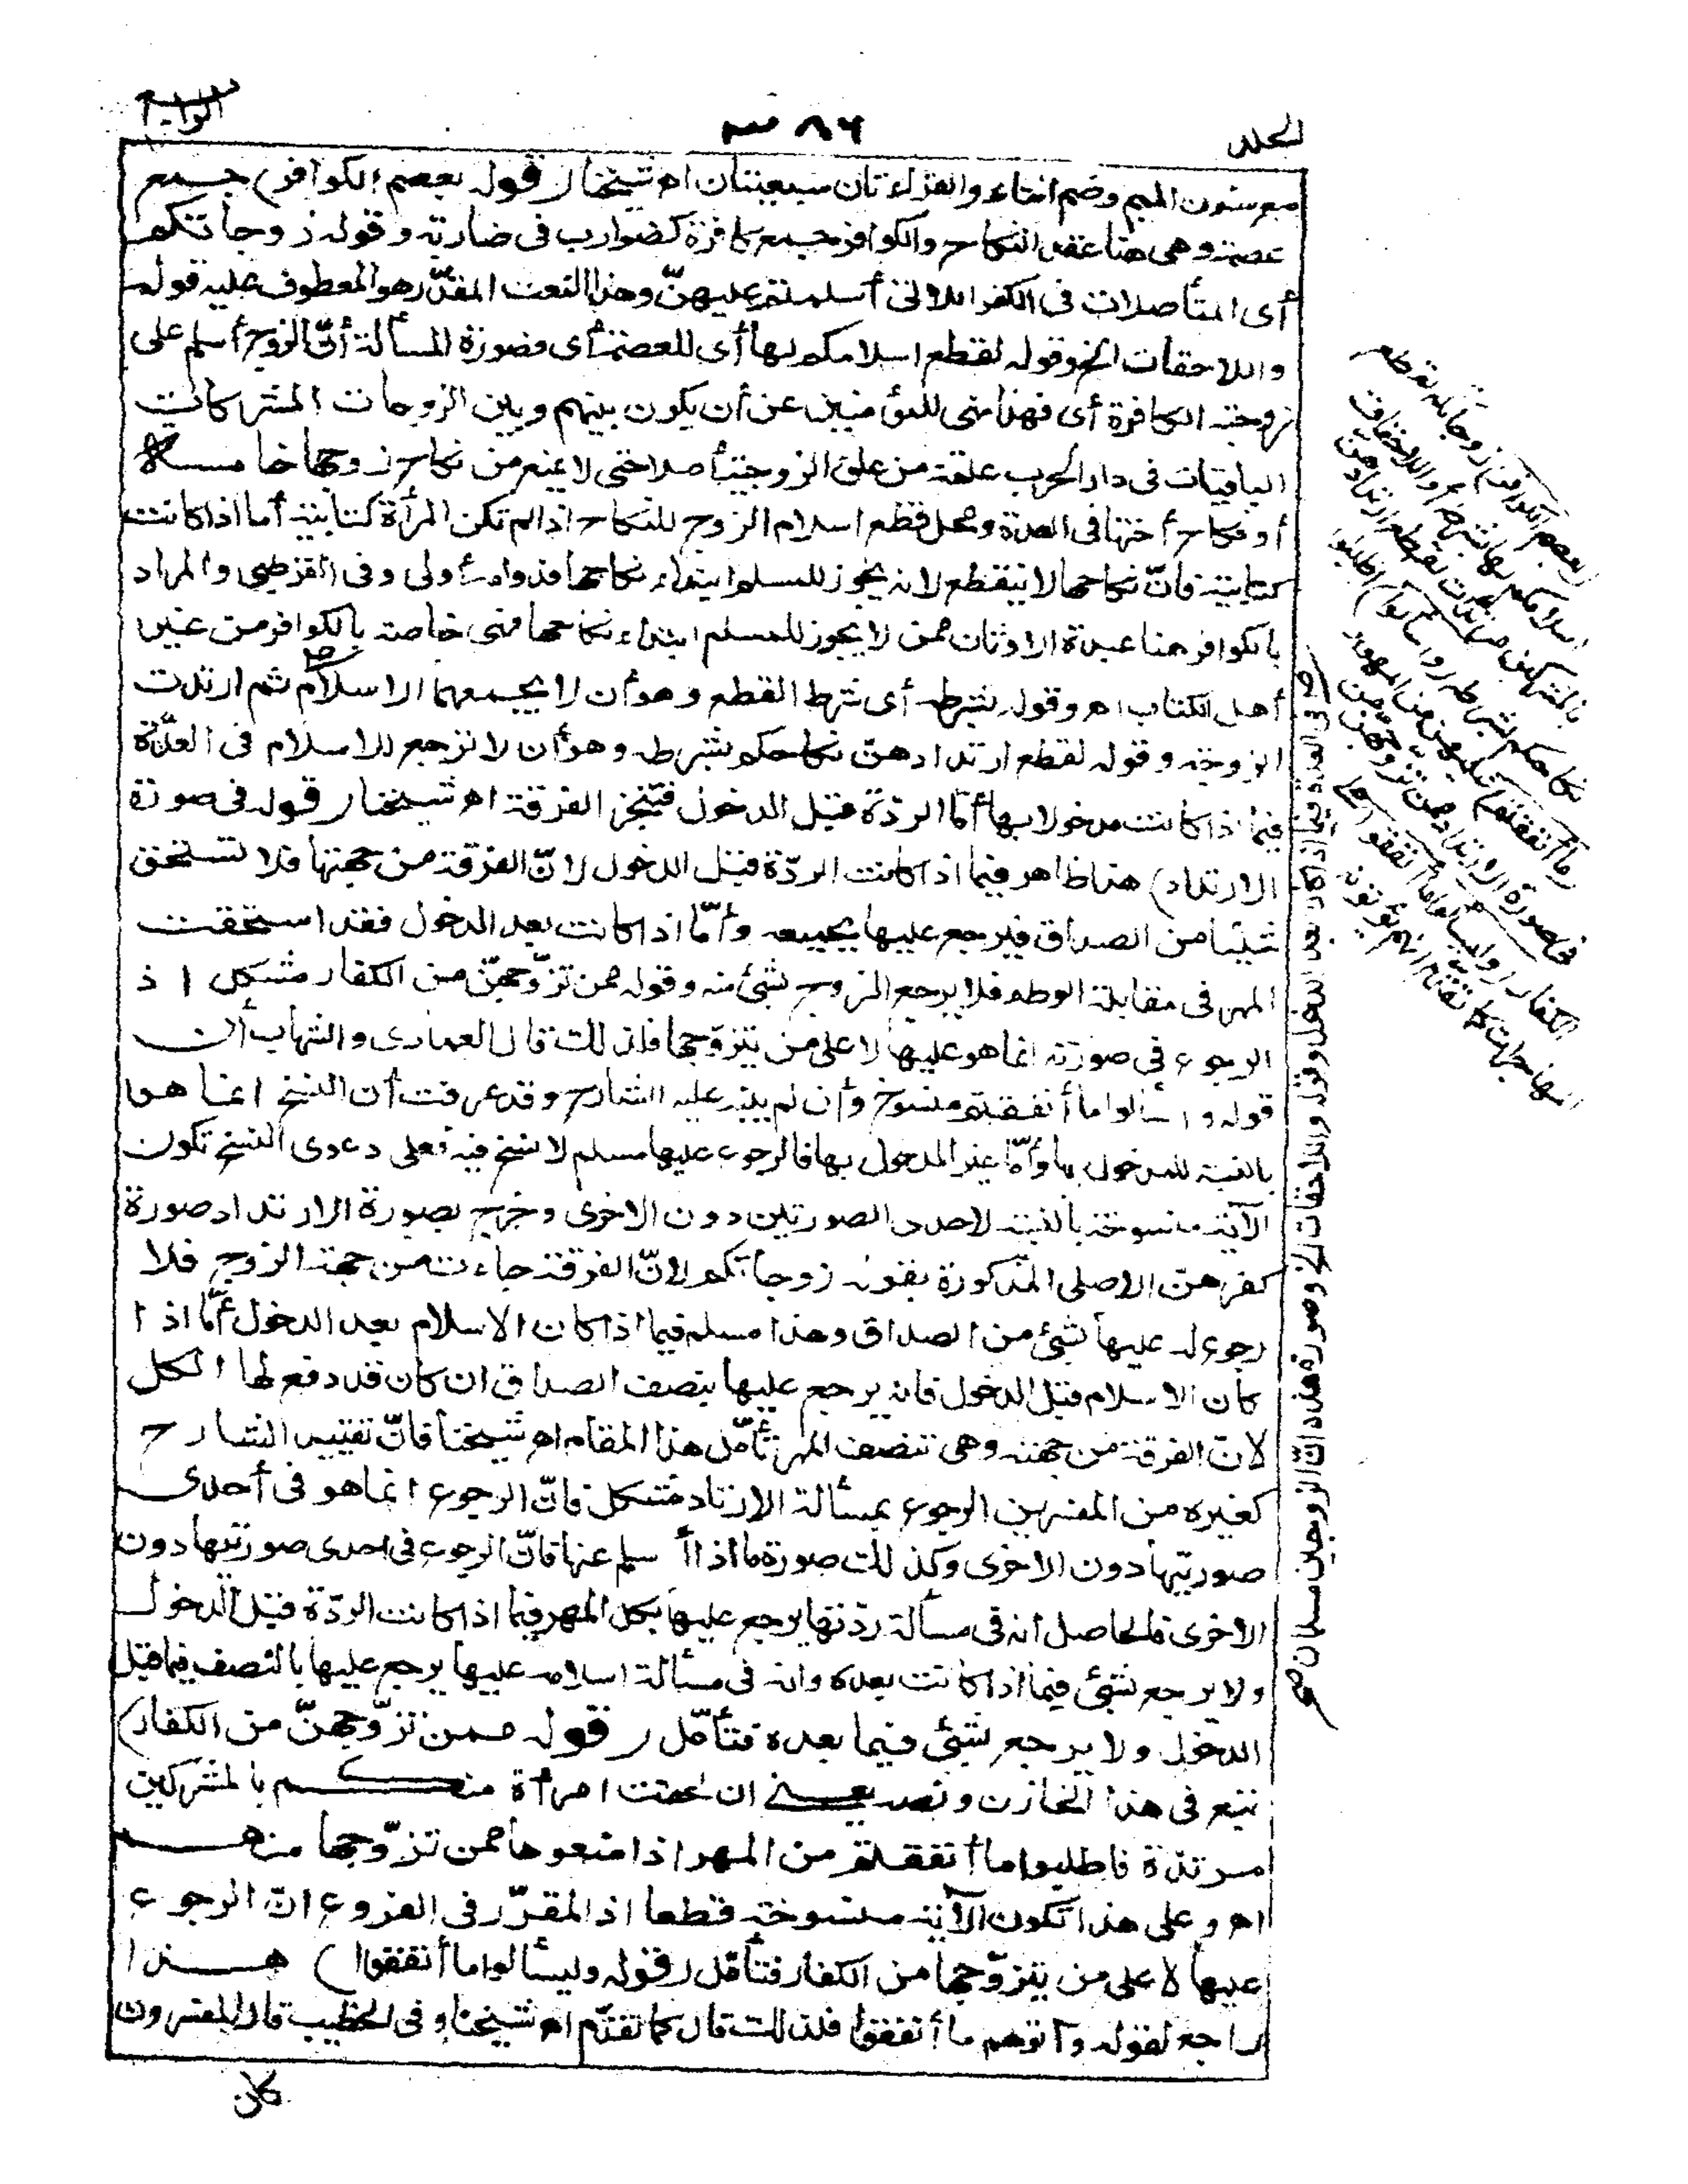 المجلد
٣٨٦
الرابع
مع سكون الميم وضم التاء والقراءتان سبعيتان اه شيخنا (قوله بعصم الكوافر) جمع
عصمة وهى هنا عقد النكاح والكوافر جمع كافرة كضوارب فى ضاربة وقوله زوجاتكم
أى المتأصلات فى الكفر اللاتى أسلمتم عليهنّ وهذا النعت المقدّر هو المعطوف عليه قوله
واللاحقات الخ وقوله لقطع اسلامكم لها أى للعصمة أى فصورة المسألة أنّ الزوج أسلم على
زوجته الكافرة أى فهذا نهى للمؤمنين عن أن يكون بينهم وبين الزوجات المشركات
الباقيات فى دار الحرب علقة من علق الزوجية أصلا حتى لا يمنع من نكاح زوجها خامسة
أو نكاح أختها فى العدة ومحل قطع اسلام الزوج للنكاح اذا لم تكن المرأة كتابية أما اذا كانت
كتابية فانّ نكاحها لا ينقطع لانه يجوز للمسلم ابتداء نكاحها فدوامه أولى وفى القرطبى والمراد
بالكوافر هنا عبدة الاوثان ممن لا يجوز للمسلم ابتداء نكاحها فهى خاصة بالكوافر من غير
أهل الكتاب اه وقوله بشرطه أى شرط القطع وهو أن لا يجمعهما الاسلام ثم ارتدت
الزوجة وقوله لقطع ارتدادهنّ نكاحكم بشرطه وهو أن لا ترجع للاسلام فى العدّة
فيما اذا كانت مدخولا بها أمّا الردّة قبل الدخول فتنجز الفرقة اه شيخنا (قوله فى صورة
الارتداد) هذا ظاهر فيما اذا كانت الردّة قبل الدخول لانّ الفرقة من جهتها فلا تستحق
شيئا من الصداق فيرجع عليها بجميعه وأمّا اذا كانت بعد الدخول فقد استحقت
المهر فى مقابلة الوطء فلا يرجع الزوج بشئ منه وقوله ممن تزوّجهنّ من الكفار مشكل اذ
الرجوع فى صورته انما هو عليها لا على من يتزوّجها فلذلك قال العمادى والشهاب أن
قوله واسألوا ما أنفقتم منسوخ وأن لم ينبه عليه الشارح وقد عرفت أن النسخ انما هو
بالنسبة للمدخول بها وأمّا غير المدخول بها فالرجوع عليها مسلم لا نسخ فيه فعلى دعوى النسخ تكون
الآية منسوخة بالنسبة لاحدى الصورتين دون الاخرى وخرج بصورة الارتداد صورة
كفرهنّ الاصلى المذكورة بقوله زوجاتكم لانّ الفرقة جاءت من جهة الزوج فلا
رجوع له عليها بشئ من الصداق وهذا مسلم فيما اذا كان الاسلام بعد الدخول أمّا اذا
كان الاسلام قبل الدخول فانه يرجع عليها بنصف الصداق ان كان قد دفع لها الكل
لانّ الفرقة من جهته وهى تنصف المهر تأمّل هذا المقام اه شيخنا فانّ تقييد الشارح
كغيره من المفسرين الرجوع بمسألة الارتداد مشكل فانّ الرجوع انما هو فى أحدى
صورتيها دون الاخرى وكذلك صورة ما اذا أسلم عنها فانّ الرجوع فى احدى صورتيها دون
الاخرى فالحاصل انه فى مسألة ردّتها يرجع عليها بكل المهر فيما اذا كانت الردّة قبل الدخول
ولا يرجع بشئ فيما اذا كانت بعده وانه فى مسألة اسلامه عليها يرجع عليها بالنصف فيما قبل
الدخول ولا يرجع بشئ فيما بعده فتأمّل (قوله ممن تزوّجهنّ من الكفار)
تبع فى هذا الخازن ونصه يعنى ان لحقت امرأة منكم بالمشركين
مرتدّة فاطلبوا ما أنفقتم من المهر اذا منعوها ممن تزوّجها منهم
اه وعلى هذا تكون الآية منسوخة قطعا اذ المقرّر فى الفروع انّ الرجوع
عليها لا على من يتزوّجها من الكفار فتأمّل (قوله وليسألوا ما أنفقوا) هذا
راجع لقوله وآتوهم ما أنفقوا فلذلك قال كما تقدّم اه شيخنا وفى الخطيب قال المفسرون
كان
بعصم الكوافر زوجاتكم لقطع
اسلامكم لها بشرطه أو اللاحقات
بالمشركين مرتدّات لقطع ارتدادهن
نكاحكم بشرطه (واسألوا) اطلبوا
ما أنفقتم عليهن من المهور
فى صورة الارتداد ممن تزوّجهن من
الكفار (وليسألوا ما أنفقوا) على
المهاجرات كما تقدم انهم يؤتونه
فى العدة فيما اذا كان بعد الدخول وقوله واللاحقات الخ وصورة هذه انّ الزوجين مسلمان